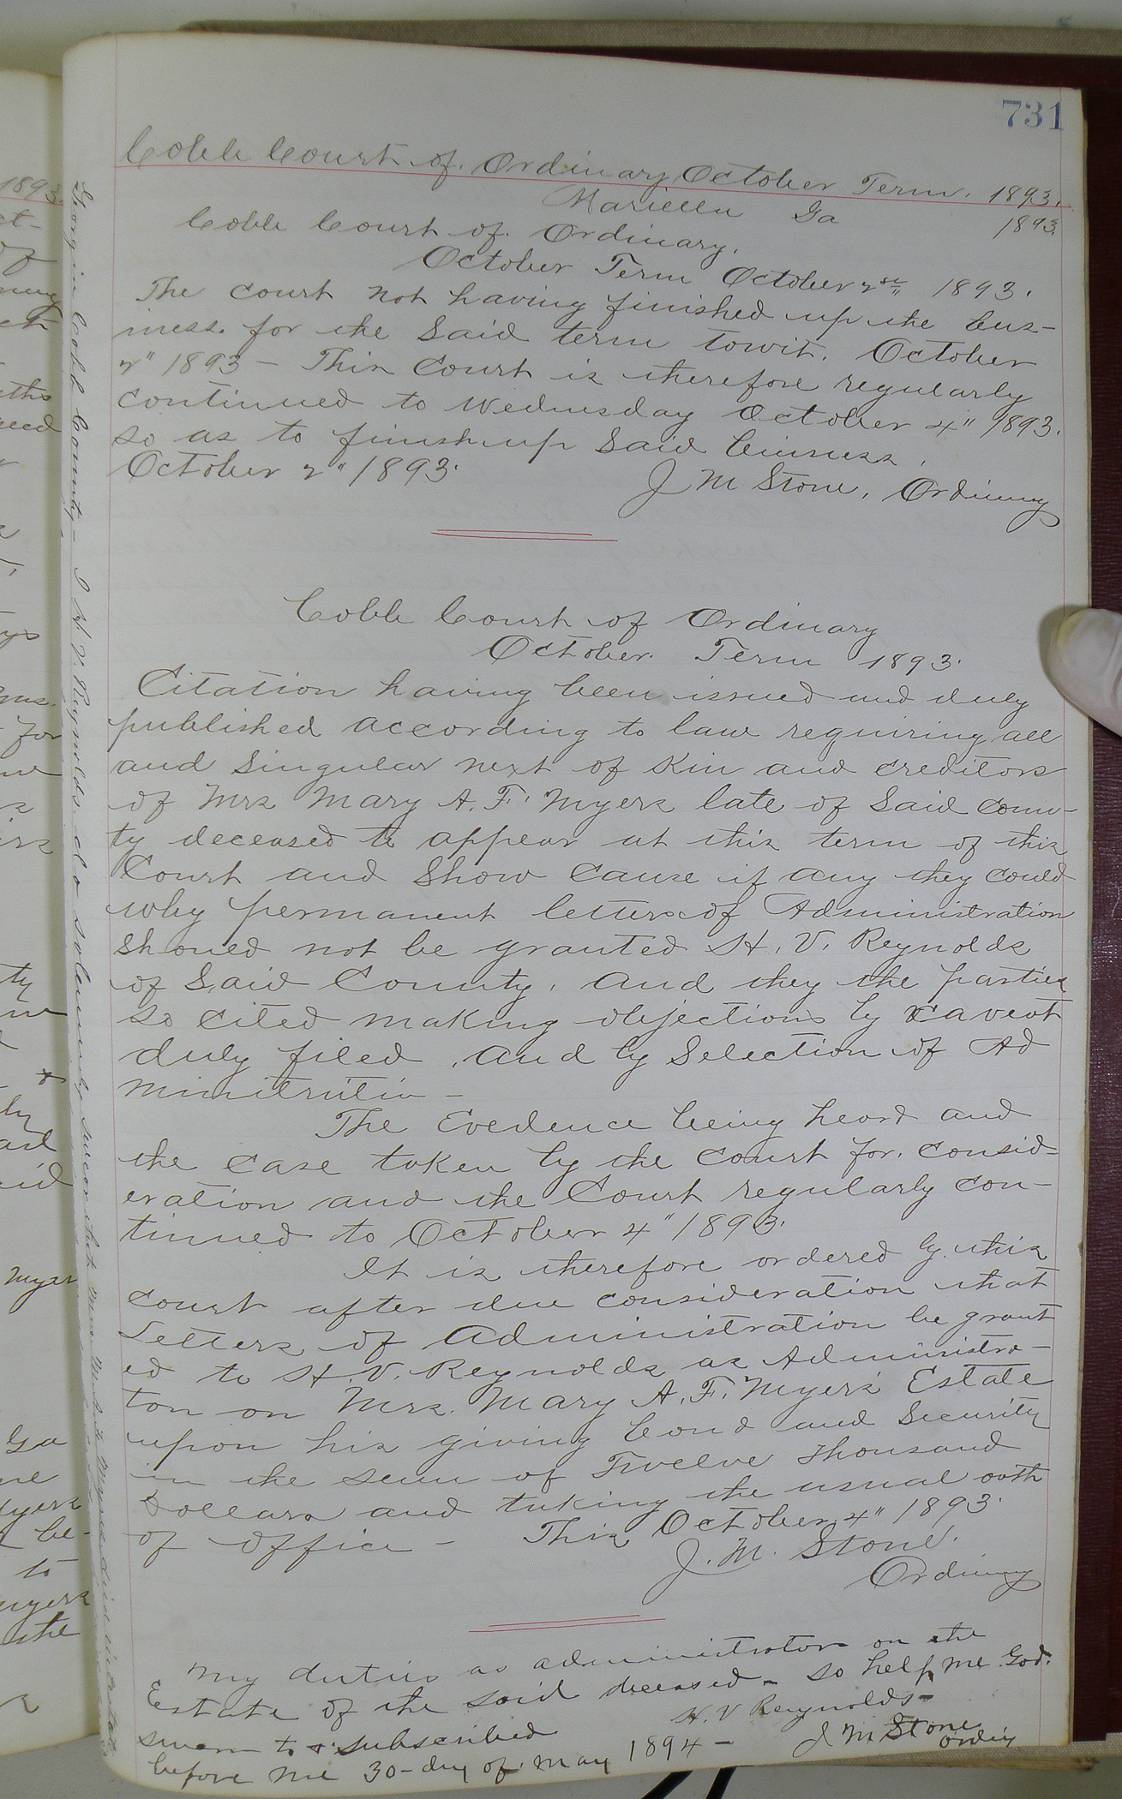 731
Cobb Court of Ordinary October Term. 1893.
Marietta Ga 1893
Cobb Court of Ordinary.
October Term October 2nd 1893.
The court not having finished up the bus-
iness. for the Said term towit. October
2" 1893 - This Court is therefore regularly
continued to Wednesday October 4" 1893.
so as to finish up Said business.
October 2" 1893.
J M Stone, Ordinary
Cobb Court of Ordinary
October Term 1893.
Citation having been issued and duly
published according to law requiring all
and Singular next of Kin and creditors
of Mrs Mary A. F. Myers late of Said coun-
ty deceased to appear at this term of this
Court and Show Cause if any they could
why permanent letters of Administration
Should not be granted H. V. Reynolds
of Said County, and they the parties
So cited making objections by caveat
duly filed, and by Selection of Ad
ministratin -
The Evedence being heard and
the Case taken by the court for consid-
eration and the Court regularly con-
tinued to October 4" 1893.
It is therefore ordered by this
court after due consideration that
Letters of Administration be grant
ed to H. V. Reynolds as Administra-
tor on Mrs. Mary A. F. Myers Estate
upon his giving bond and Security
in the sum of Twelve thousand
Dollars and taking the usual oath
of office - This October 4" 1893.
J. M. Stone.
Ordinary
My duties as administrator on the
Estate of the said deceased - so help me God.
H. V Reynolds -
Sworn to & subscribed
before me 30 - day of May 1894 - J M Stone
Ordiy
Georgia Cobb County - I H. V. Reynolds do solemnly swear that Mrs Myers died intestate